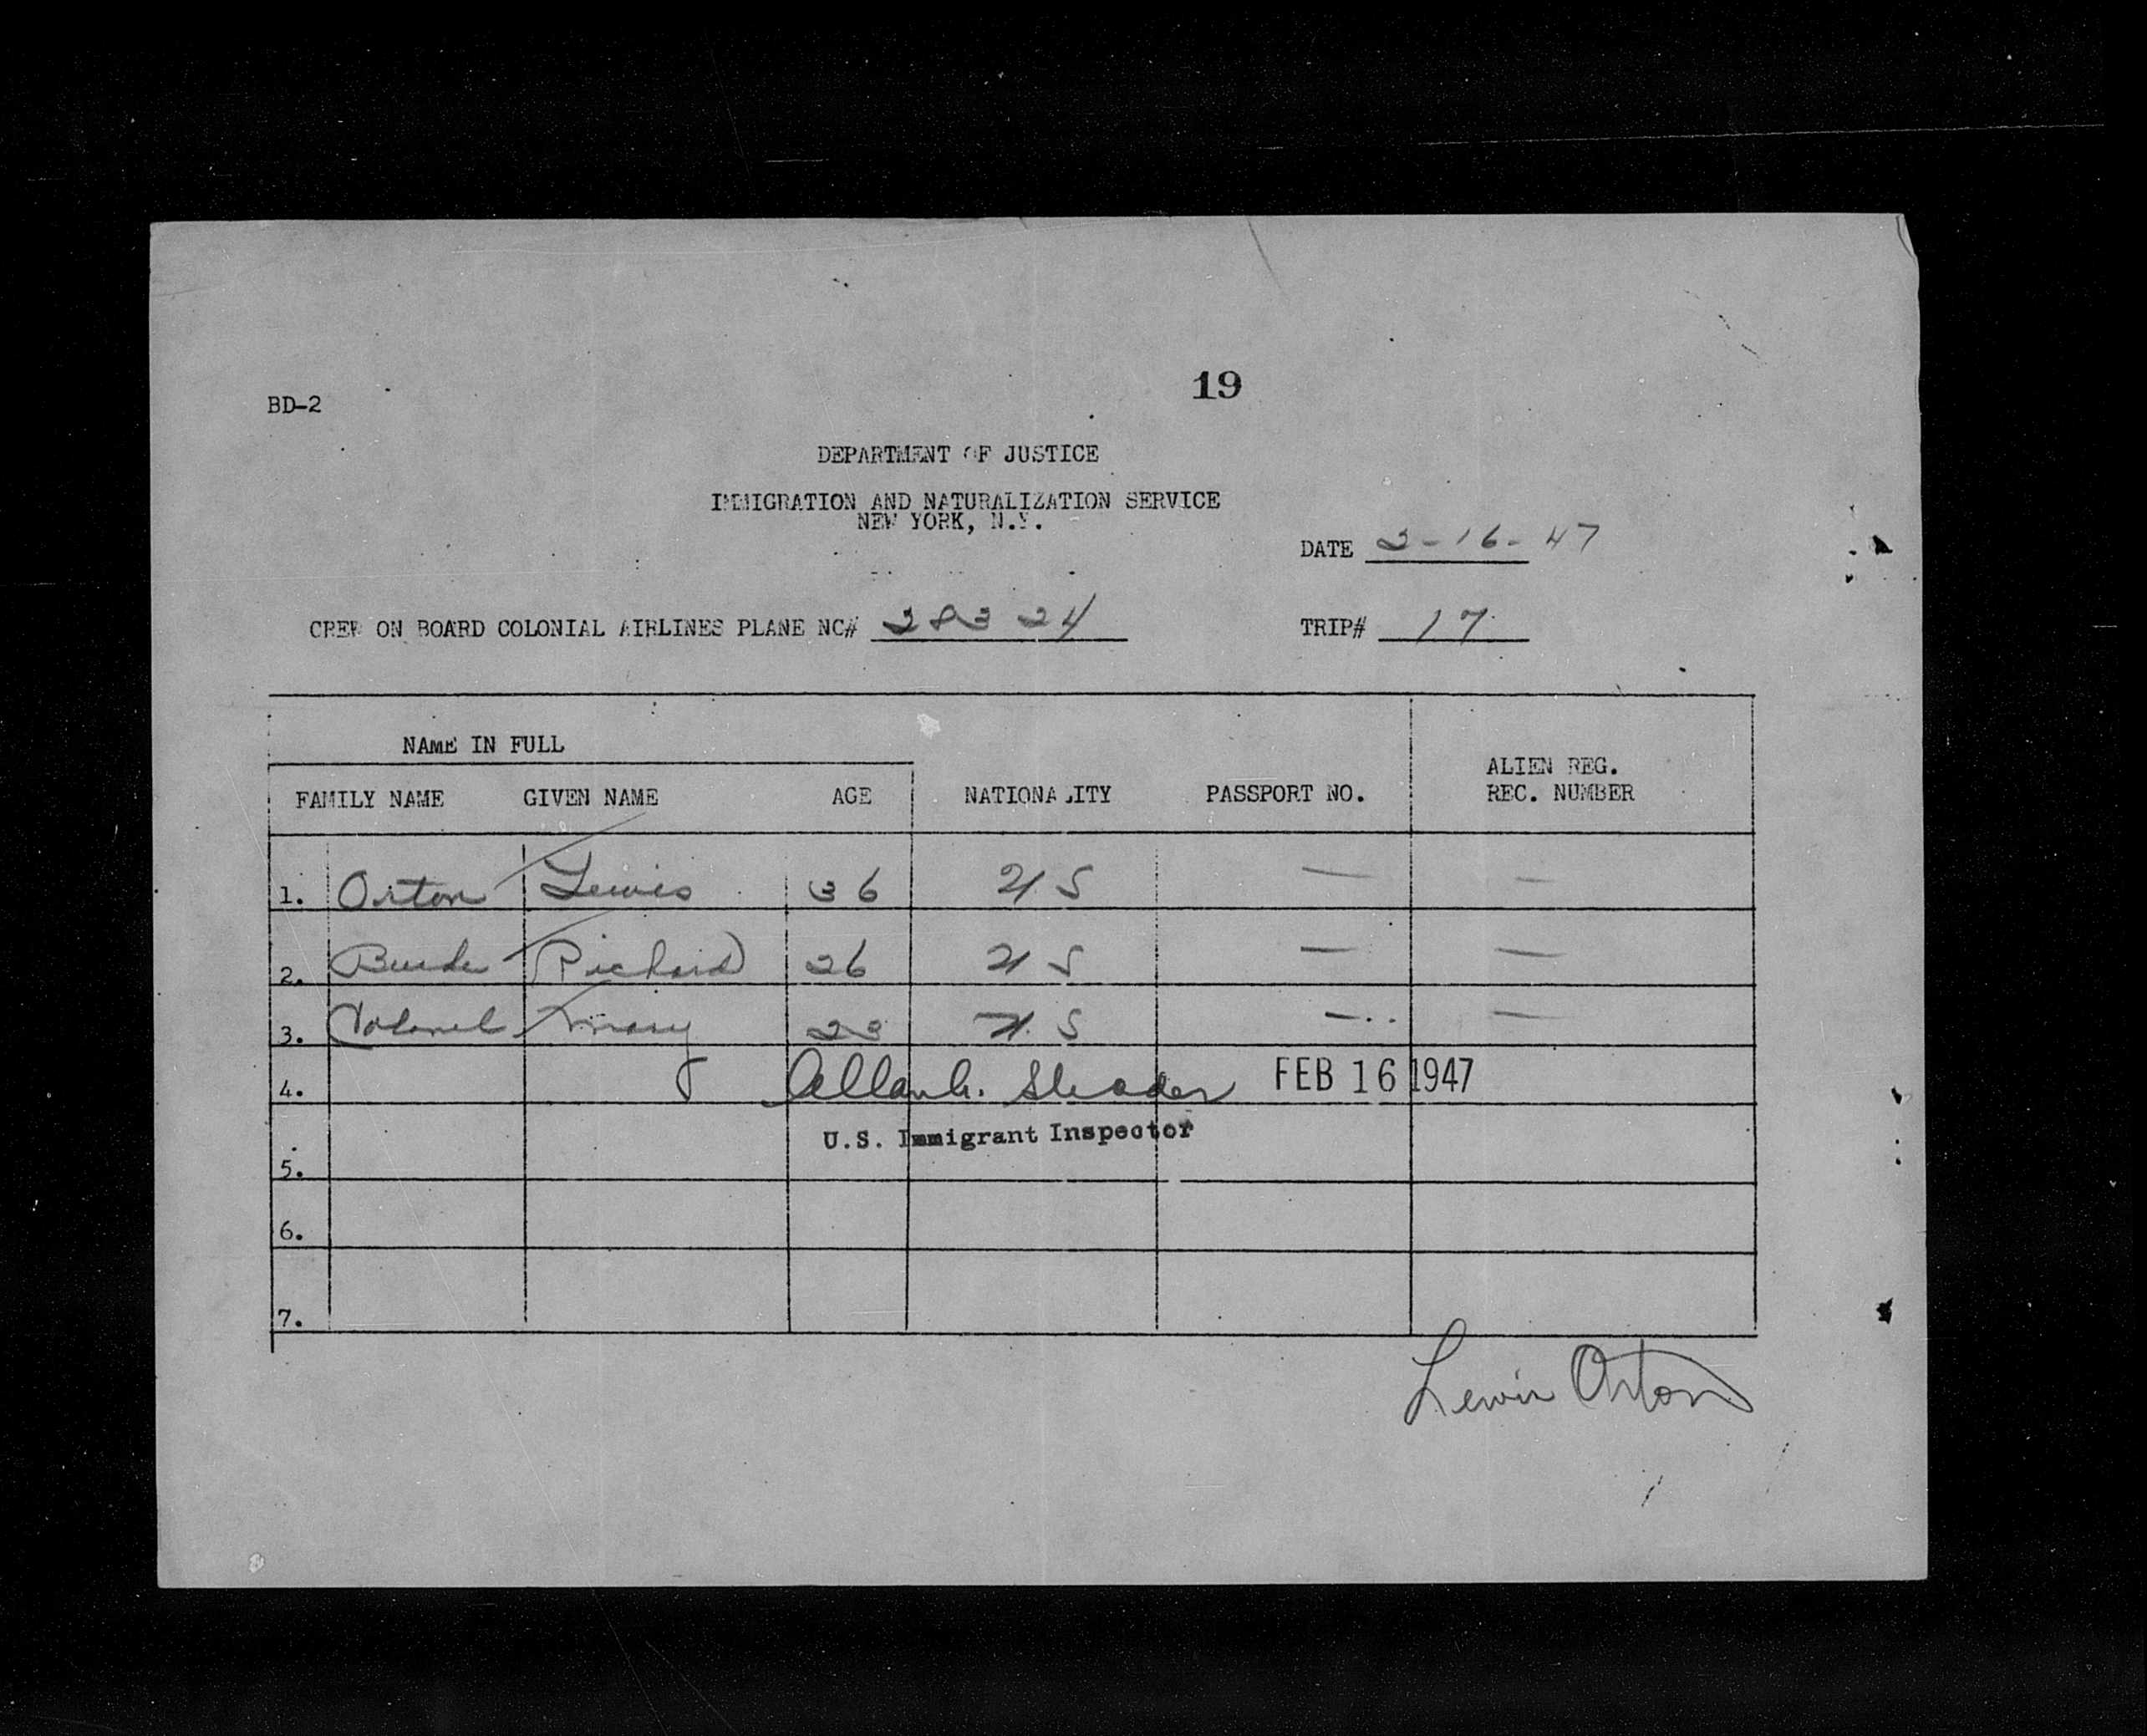 19
BD-2
DEPARTMENT OF JUSTICE
IMMIGRATION AND NATURALIZATION SERVICE
NEW YORK, N.Y.
DATE 2-16-47
CREW ON BOARD COLONIAL AIRLINES PLANE NC# 28324
TRIP# 17
NAME IN FULL
FAMILY NAME GIVEN NAME AGE NATIONALITY PASSPORT NO. ALIEN REG. REC. NUMBER
1. Orton Lewis 36 US — —
2. Richard 26 US — —
3. Colonel Mary 23 US — —
4. FEB 16 1947
U.S. Immigrant Inspector
5.
6.
7.
Lewis Orton